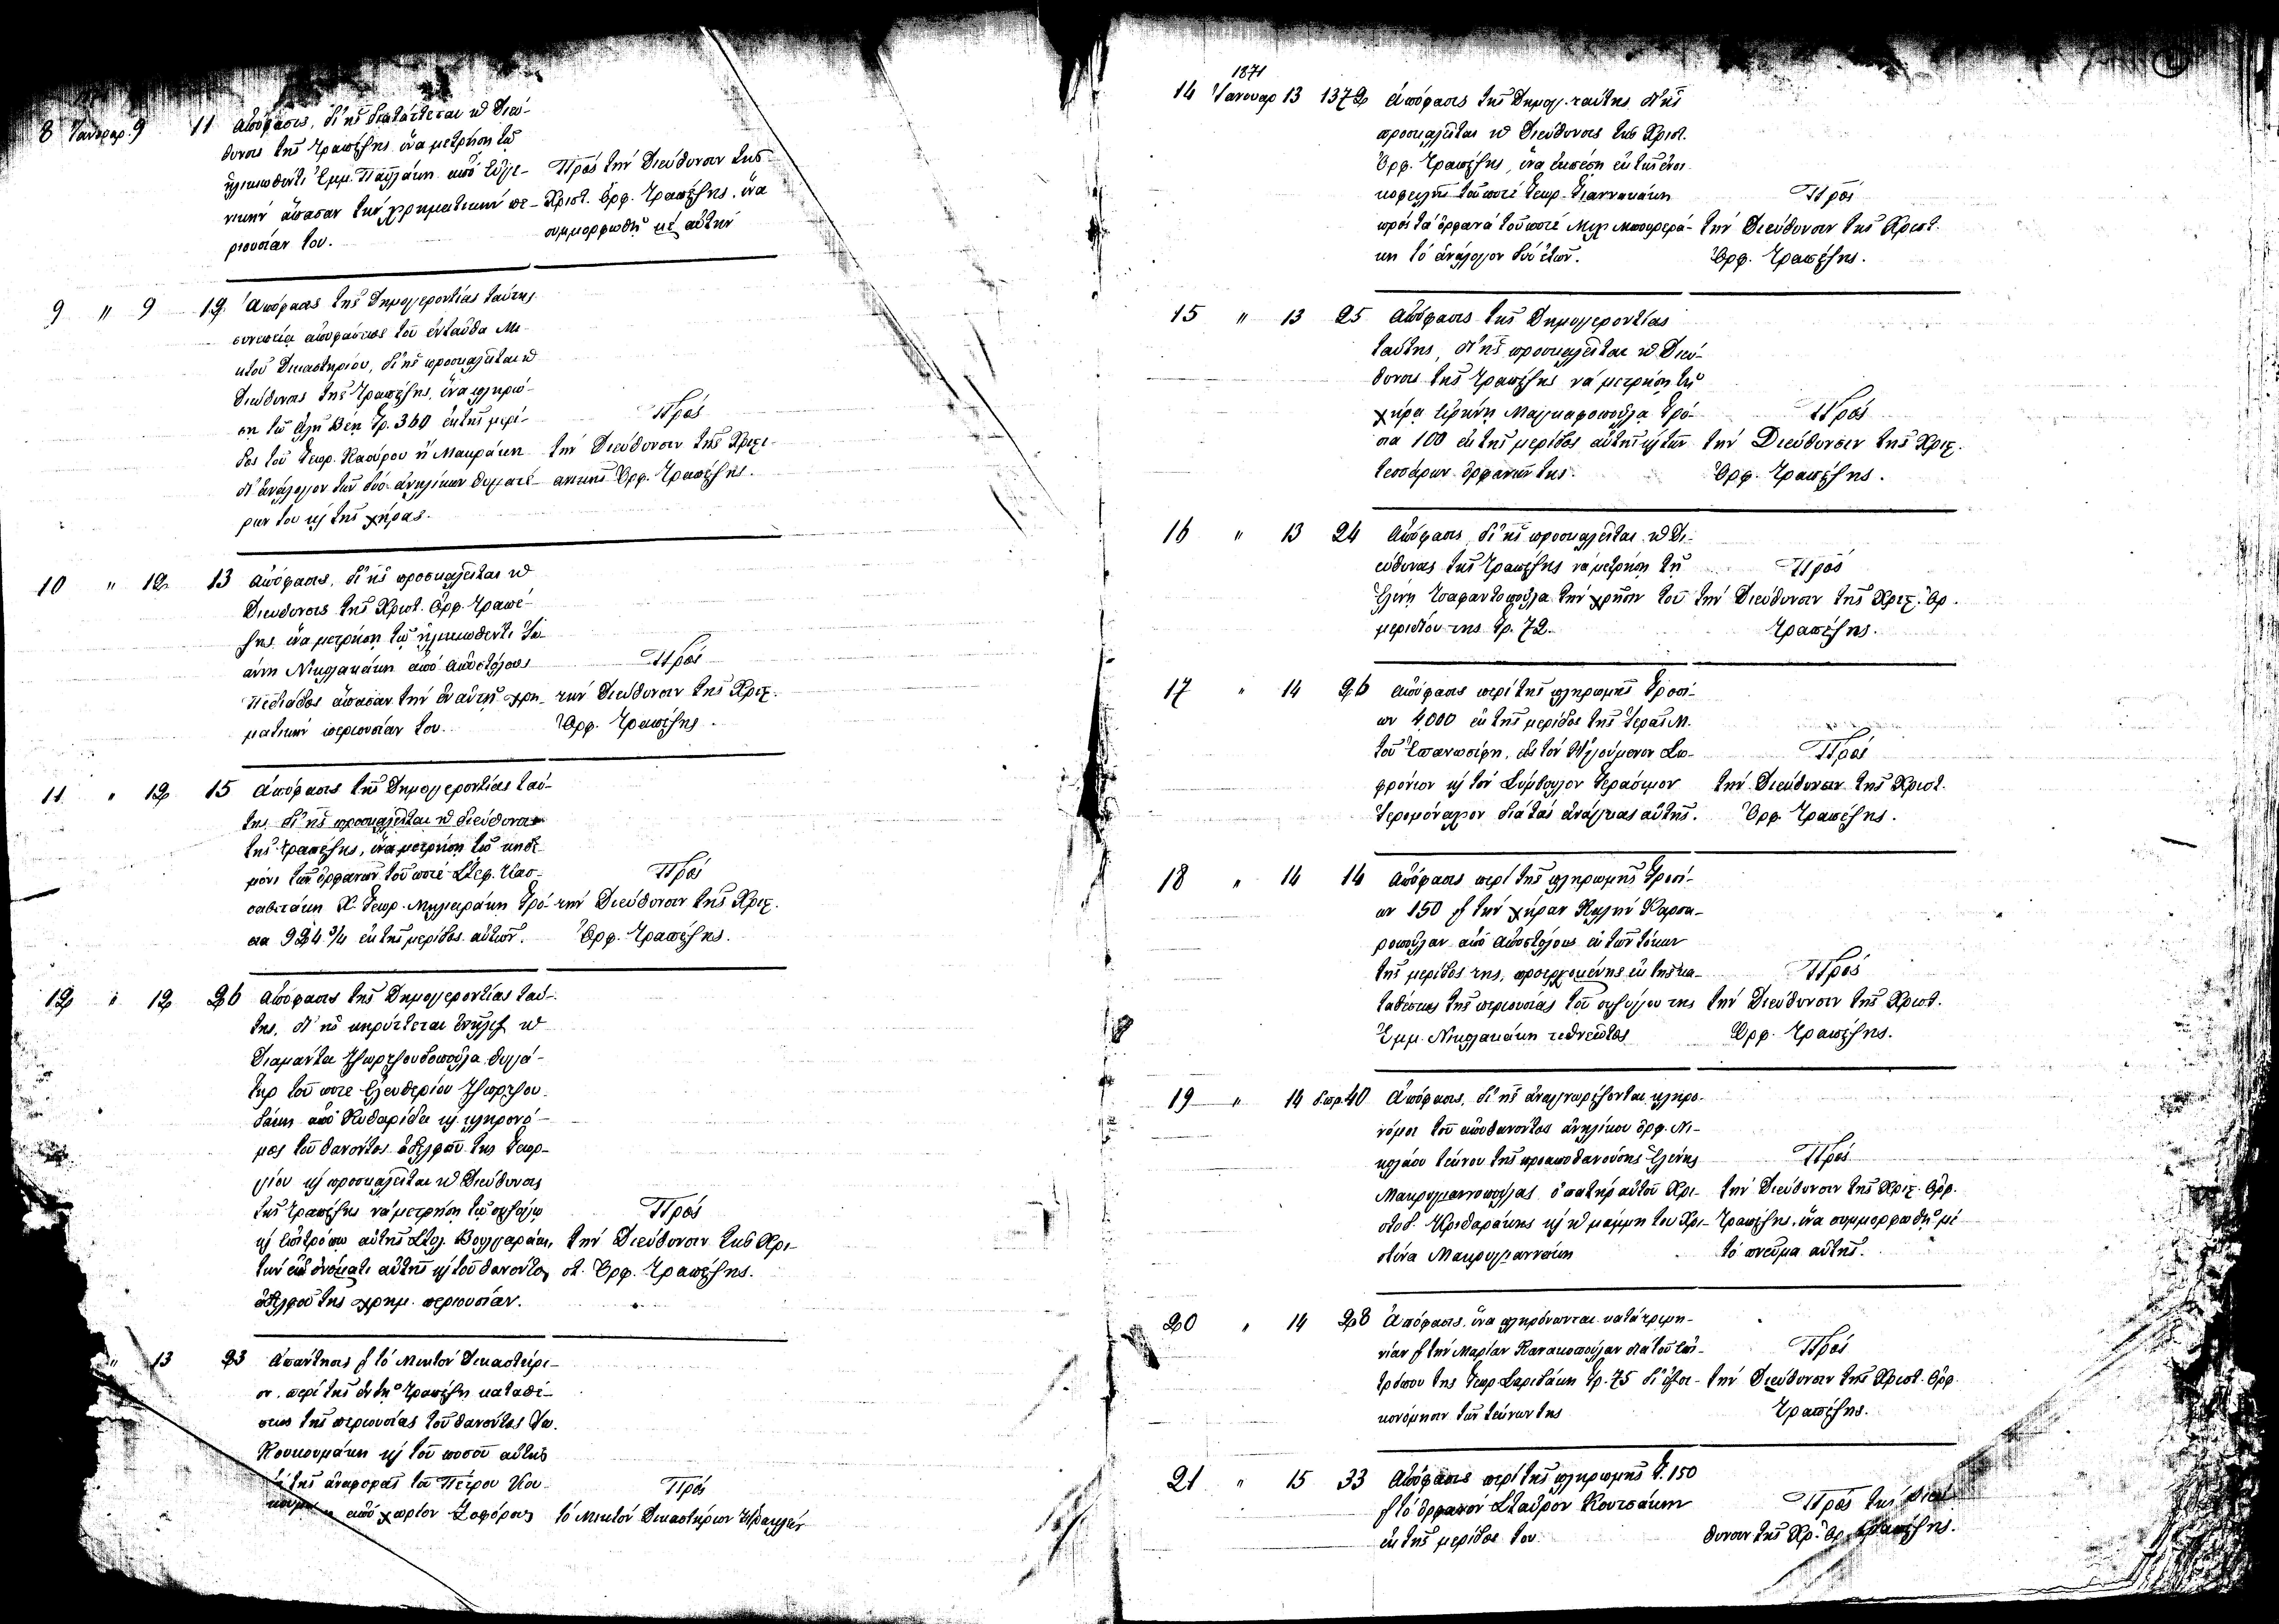 8 Ἰανουαρ. 9 11 Ἀπόφασις, δι' ἧς διατάττεται ἡ Διεύ-
θυνσις τῆς Τραπέζης ἵνα μετρήσῃ τῷ
ἡλικιωθέντι Ἐμμ. Παυλάκη ἀπό
ἅπασαν τήν χρηματικήν πε-
ριουσίαν του.
Πρός τήν Διεύθυνσιν τῆς
Χριστ. Ὀρφ. Τραπέζης, ἵνα
συμμορφωθῇ μέ αὐτήν
9 " 9 12 Ἀπόφασις τῆς Δημογεροντίας ταύτης
συνεπείᾳ ἀποφάσεως τοῦ ἐνταῦθα Μι-
κτοῦ Δικαστηρίου, δι' ἧς προσκαλεῖται ἡ
Διεύθυνσις τῆς Τραπέζης, ἵνα πληρώ-
σῃ τῷ Ἀλῆ Βέη Γρ. 360 ἐκ τῆς μερί-
δος τοῦ Γεωρ. Καούρου ἤ Μακράκη
δι' ἀνάλογον τῶν δύο ἀνηλίκων θυγατέ-
ρων του κ τῆς χήρας.
Πρός
τήν Διεύθυνσιν τῆς Χριστι-
ανικῆς Ὀρφ. Τραπέζης.
10 " 12 13 Ἀπόφασις, δι' ἧς προσκαλεῖται ἡ
Διεύθυνσις τῆς Χριστ. Ὀρφ. Τραπέ-
ζης ἵνα μετρήσῃ τῷ ἡλικιωθέντι Ἰω-
άννη Νικολακάκη ἀπό Ἀποστόλους
Πεδιάδος ἅπασαν τήν ἐν αὐτῇ χρη-
ματικήν περιουσίαν του.
Πρός
τήν Διεύθυνσιν τῆς Χριστ.
Ὀρφ. Τραπέζης.
11 " 12 15 Ἀπόφασις τῆς Δημογεροντίας ταύ-
της δι' ἧς προσκαλεῖται ἡ Διεύθυνσις
τῆς Τραπέζης, ἵνα μετρήσῃ τῷ κηδε-
μόνι τῶν ὀρφανῶν τοῦ ποτέ Στεφ.
Χ. Γεωρ. Γρό-
σια 924 3/4 ἐκ τῆς μερίδος αὐτῶν.
Πρός
τήν Διεύθυνσιν τῆς Χριστ.
Ὀρφ. Τραπέζης.
12 " 12 26 Ἀπόφασις τῆς Δημογεροντίας ταύ-
της, δι' ἧς κηρύττεται ἐνῆλιξ ἡ
Διαμάντα Τζωρτζουδοπούλα θυγά-
τηρ τοῦ ποτέ Ἐλευθερίου Τζωρτζου-
δάκη ἀπό Κιθαρίδα κ κληρονό-
μος τοῦ θανόντος ἀδελφοῦ της Γεωρ-
γίου κ προσκαλεῖται ἡ Διεύθυνσις
τῆς Τραπέζης νά μετρήσῃ τῷ συζύγῳ
κ ἐπιτρόπῳ αὐτῆς Στυλ. Βουλγαράκη,
τήν ἐπ' ὀνόματι αὐτῆς κ τοῦ θανόντος
ἀδελφοῦ της χρημ. περιουσίαν.
Πρός
τήν Διεύθυνσιν τῆς Χρι-
στ. Ὀρφ. Τραπέζης.
" 13 23 Ἀπάντησις τό Μικτόν Δικαστήρι-
ον, περί τῆς ἐν τῇ Τραπέζῃ καταθέ-
σεως τῆς περιουσίας τοῦ θανόντος Ἰω.
Κουκουμάκη κ τοῦ ποσοῦ αὐτῆς
τῆς ἀναφορᾶς τοῦ Πέτρου Κου-
ἀπό χωρίον Ζοφόρους
Πρός
τό Μικτόν Δικαστήριον Ἡρακλείου
1871
14 Ἰανουαρ 13 1372 Ἀπόφασις τῆς Δημογ. ταύτης δι' ἧς
προσκαλεῖται ἡ Διεύθυνσις τῆς Χριστ.
Ὀρφ. Τραπέζης, ἵνα ἐκπέσῃ ἐκ τῶν ἐνοι-
κοφειλῆς τοῦ ποτέ Γεωρ. Γιαννακάκη
πρός τά ὀρφανά τοῦ ποτέ Μιχ
κη τό ἀνάλογον δύο ἐτῶν.
Πρός
τήν Διεύθυνσιν τῆς Χριστ.
Ὀρφ. Τραπέζης.
15 " 13 25 Ἀπόφασις τῆς Δημογεροντίας
ταύτης, δι' ἧς προσκαλεῖται ἡ Διεύ-
θυνσις τῆς Τραπέζης νά μετρήσῃ τῇ
χήρᾳ Εἰρήνῃ Γρό-
σια 100 ἐκ τῆς μερίδος αὐτῆς κ τῶν
τεσσάρων ὀρφανῶν της.
Πρός
τήν Διεύθυνσιν τῆς Χριστ.
Ὀρφ. Τραπέζης.
16 " 13 24 Ἀπόφασις, δι' ἧς προσκαλεῖται ἡ Δι-
εύθυνσις τῆς Τραπέζης νά μετρήσῃ τῇ
Ἑλένῃ Τσαφαντοπούλα τήν χρῆσιν τοῦ
μεριδίου της Γρ. 72.
Πρός
τήν Διεύθυνσιν τῆς Χριστ. Ὀρ.
Τραπέζης.
17 " 14 26 Ἀπόφασις περί τῆς πληρωμῆς Γροσί-
ων 4000 ἐκ τῆς μερίδος τῆς Ἱερᾶς Μ.
τοῦ Ἐπανωσήφη, εἰς τόν Ἡγούμενον Σω-
φρόνιον κ τόν Σύμβουλον Γεράσιμον
Ἱερομόναχον διά τάς ἀνάγκας αὐτῆς.
Πρός
τήν Διεύθυνσιν τῆς Χριστ.
Ὀρφ. Τραπέζης.
18 " 14 14 Ἀπόφασις περί τῆς πληρωμῆς Γροσί-
ων 150 τήν χήραν Καλήν
ροπούλαν ἀπό Ἀποστόλους ἐκ τῶν τόκων
τῆς μερίδος της, προερχομένης ἐκ τῆς κα-
ταθέσεως τῆς περιουσίας τοῦ συζύγου της
Ἐμμ. Νικολακάκη τεθνεῶτος
Πρός
τήν Διεύθυνσιν τῆς Χριστ.
Ὀρφ. Τραπέζης.
19 " 14 διπ. 40 Ἀπόφασις, δι' ἧς ἀναγνωρίζονται κληρο-
νόμοι τοῦ ἀποθανόντος ἀνηλίκου ὀρφ. Νι-
κολάου τέκνου τῆς προαποθανούσης Ἑλένης
Μακρυγιαννοπούλας ὁ πατήρ αὐτοῦ Χρι-
στοδ. Κριθαράκης κ ἡ μάμμη του Χρι-
στίνα Μακρυγιαννάκη
Πρός
τήν Διεύθυνσιν τῆς Χριστ. Ὀρφ.
Τραπέζης, ἵνα συμμορφωθῇ μέ
τό πνεῦμα αὐτῆς.
20 " 14 28 Ἀπόφασις ἵνα πληρόνωνται κατά τριμη-
νίαν τήν Μαρίαν Κανακοπούλαν διά τοῦ ἐπι-
τρόπου της Γεωρ Σαριδάκη Γρ. 75 δι' ἐξοι-
κονόμησιν τῶν τέκνων της
Πρός
τήν Διεύθυνσιν τῆς Χριστ. Ὀρφ.
Τραπέζης.
21 " 15 33 Ἀπόφασις περί τῆς πληρωμῆς Γ. 150
τό ὀρφανόν Σταῦρον Κουτσάκην
ἐκ τῆς μερίδος του
Πρός τήν Διεύ-
θυνσιν τῆς Χρ. Ὀρ. Τραπέζης.